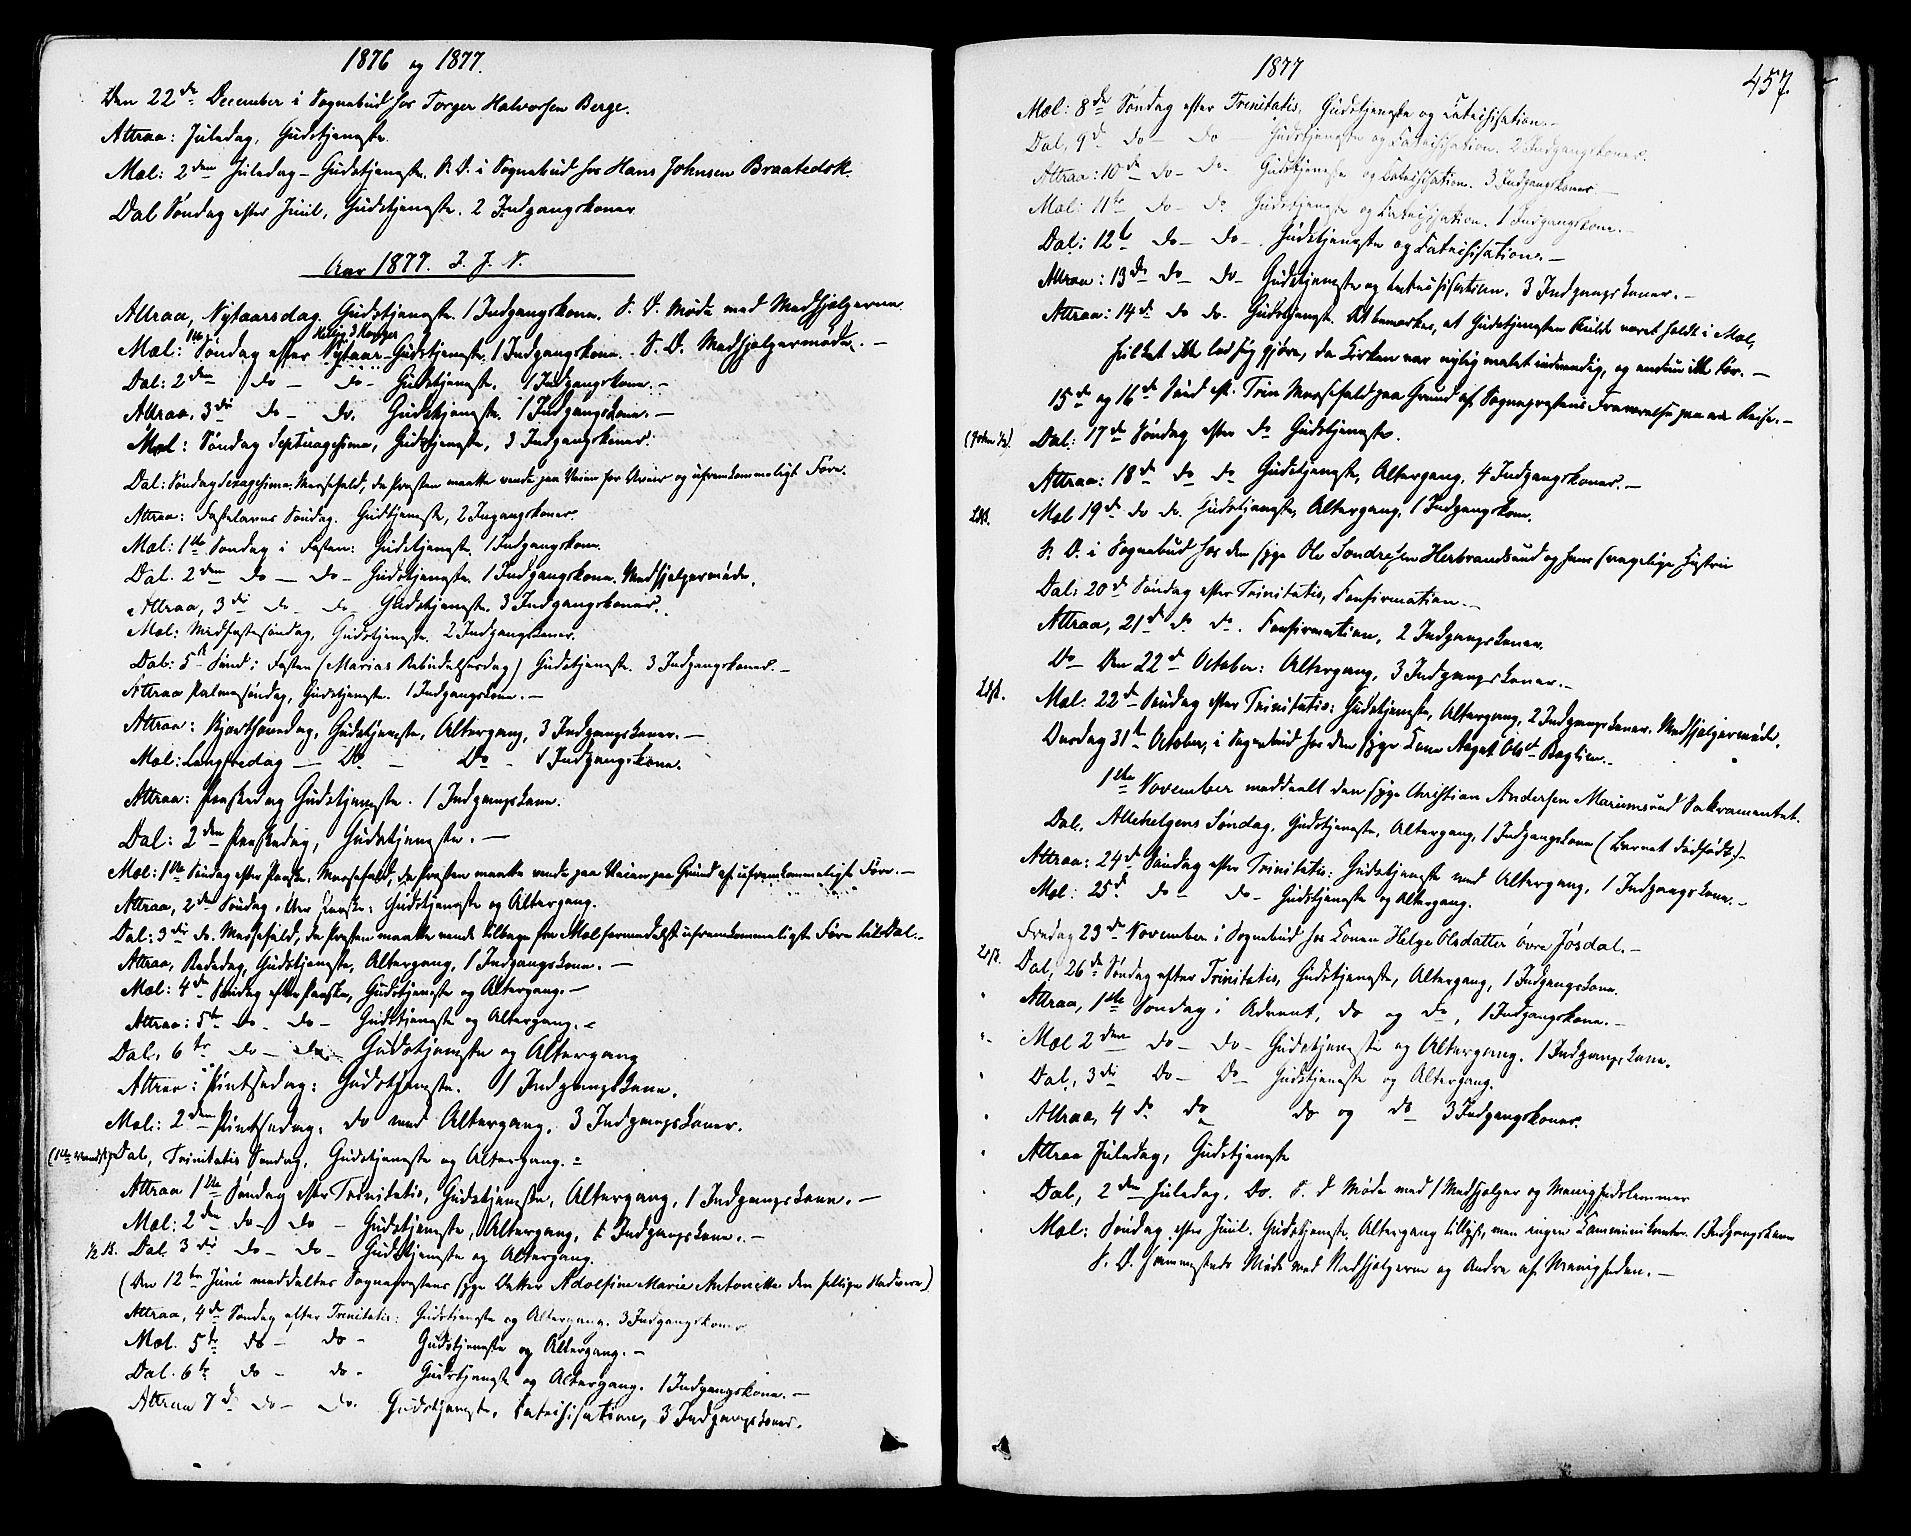 1876 og 1877.
Den 22de December i Sognebud hos Torger Halvorsen Berge.
Attraa: Juledag, Gudstjeneste.
Mæl: 2den Juledag – Gudstjeneste. S. D. i Sognebud hos Hans Johnsen Braatedok.
Dal Søndag efter Juul, Gudstjeneste. 2 Indgangskoner
Aar 1877. I. J. N.
Attraa, Nytaarsdag. Gudstjeneste. 1 Indgangskone. S. D. Møde med Medhjelperne.
Mæl: 1ste Søndag efter Nytaar Hellig 3 Konger – Gudstjeneste. 1 Indgangskone. S. D. Medhjelpermøde. –
Dal: 2den do – do – Gudstjeneste. 1 Indgangskone. –
Attraa, 3die do – do. Gudstjeneste. 1 Indgangskone. –
Mæl: Søndag Septuagesima, Gudstjeneste, 3 Indgangskoner.
Dal: Søndag Sexagesima. Messefald, da Præsten maatte vende paa Veien for Uveir og ufremkommeligt Føre.
Attraa: Fastelavns Søndag. Gudstjeneste, 2 Ingangskoner.
Mæl: 1ste Søndag i Fasten: Gudstjeneste. 1 Indgangskone.
Dal. 2den do – do – Gudstjeneste. 1 Indgangskone. Medhjelpermøde.
Attraa, 3die do – do – Gudstjeneste. 3 Indgangskoner.
Mæl: Midfastesøndag, Gudstjeneste. 2 Indgangskoner.
Dal: 5te Sønd: i Fasten (Marias Bebudelsesdag) Gudstjeneste. 3 Indgangskoner. –
Attraa Palmesøndag, Gudstjeneste. 1 Indgangskone. –
Attraa: Skjærthorsdag, Gudstjeneste, Altergang, 3 Indgangskoner. –
Mæl: Langfredag – Do – Do – 1 Indgangskone.
Attraa: Paaskedag Gudstjeneste. 1 Indgangskone.
Dal: 2den Paaskedag, Gudstjeneste. –
Mæl: 1ste Søndag efter Paaske. Messefald, da Præsten maatte vende paa Veien paa Grund af ufremkommeligt Føre. –
Attraa, 2den Søndag efter Paaske: Gudstjeneste og Altergang.
Dal: 3die do. Messefald, da Præsten maatte vende tilbage fra Mæl formedelst ufremkommeligt Føre til Dal. –
Attraa, Bededag, Gudstjeneste, Altergang, 1 Indgangskone. –
Mæl: 4de Søndag efter Paaske, Gudstjeneste og Altergang. –
Attraa: 5te Do – do – Gudstjeneste og Altergang. –
Dal, 6te do – do – Gudstjeneste og Altergang
Attraa: Pintsedag: Gudstjeneste. 1 Indgangskone.
Mæl: 2den Pintsedag. do med Altergang, 3 Indgangskoner.
Dal, Trinitatis Søndag, Gudstjeneste og Altergang. –
Attraa 1ste Søndag efter Trinitatis, Gudstjeneste, Altergang, 1 Indgangskone. –
Mæl: 2den do – do – Gudstjeneste, Altergang, 1 Indgangskone. –
Dal. 3die do – do – Gudstjeneste og Altergang.
(Den 12te Juni meddeltes Sognepræstens syge Datter Adolfine Marie Antonette den hellige Nadvere)
Attraa, 4de Søndag efter Trinitatis: Gudstjeneste og Altergang. 3 Indgangskoner
Mæl. 5te do – do – Gudstjeneste og Altergang. –
Dal. 6te do – do – Gudstjeneste og Altergang. 1 Indgangskone. –
Attraa 7de do – do. Gudstjeneste, Catechisation, 3 Indgangskoner.
1877
457.
Mæl: 8de Søndag efter Trinitatis, Gudstjeneste og Catechisation. –
Dal, 9de do – do Gudstjeneste og Catechisation. 2 Indgangskoner.
Attraa: 10de do – do. Gudstjeneste og Catechisation. 3 Indgangskoner. –
Mæl: 11te do – do Gudstjeneste og Catechisation. 1 Indgangskone. –
Dal: 12te do – do – Gudstjeneste og Catechisation. –
Attraa: 13de do – do – Gudstjeneste og Catechisation. 3 Indgangskoner. –
Attraa: 14de do do. Gudstjeneste. NB bemærkes, at Gudstjenesten skulde været holdt i Mæl,
hvilket ikke lod sig gjøre, da Kirken var nylig malet indvendig, og endnu ikke tør. –
15de og 16de Sønd eft. Trin Messefald paa Grund af Sognepræstens Fraværelse paa en Reise. –
Dal: 17de Søndag efter do Gudstjeneste.
Attraa: 18de do do Gudstjeneste, Altergang, 4 Indgangskoner. –
Mæl 19de do do. Gudstjeneste, Altergang, 1 Indgangskone.
S. D. i Sognebud hos den syge Ole Sondresen Herbrandsund og hans svagelige Hustru
Dal: 20de Søndag efter Trinitatis, Confirmation. –
Attraa, 21de do do. Confirmation, 2 Indgangskoner.
Do Den 22de October: Altergang, 3 Indgangskoner. –
Mæl. 22de Søndag efter Trinitatis: Gudstjeneste, Altergang, 2 Indgangskoner. Medhjelpermøde.
Onsdag 31te October, i Sognebud hos den syge Kone Aaget Olsdt Baglien. –
1ste November meddeelt den syge Christian Andersen Mariunsund Sakramentet.
Dal, Allehelgens Søndag, Gudstjeneste, Altergang, 1 Indgangskone (Barnet dødfødt). –
Attraa: 24de Søndag efter Trinitatis: Gudstjeneste med Altergang, 1 Indgangskone. –
Mæl: 25de do – do – Gudstjeneste og Altergang.
Fredag 23de November i Sognebud hos Konen Helge Olsdatter övre Jøsdal. –
Dal, 26de Søndag efter Trinitatis, Gudstjeneste, Altergang, 1 Indgangskone.
Attraa, 1ste Søndag i Advent, do og do, 1 Indgangskone. –
Mæl 2den do – do – Gudstjeneste og Altergang. 1 Indgangskone.
Dal, 3die Do – Do – Gudstjeneste og Altergang.
Attraa, 4de do do og do 3 Indgangskoner.
Attraa Juledag, Gudstjeneste
Dal, 2den Juledag, Do. S. D Møde med 1 Medhjelper og Menighedslemmer
Mæl: Søndag efter Juul. Gudstjeneste, Altergang tillyst, men ingen Communikanter. 1 Indgangskone
S. D. sammesteds Møde med Medhjelperne og Andre af Menigheden. –